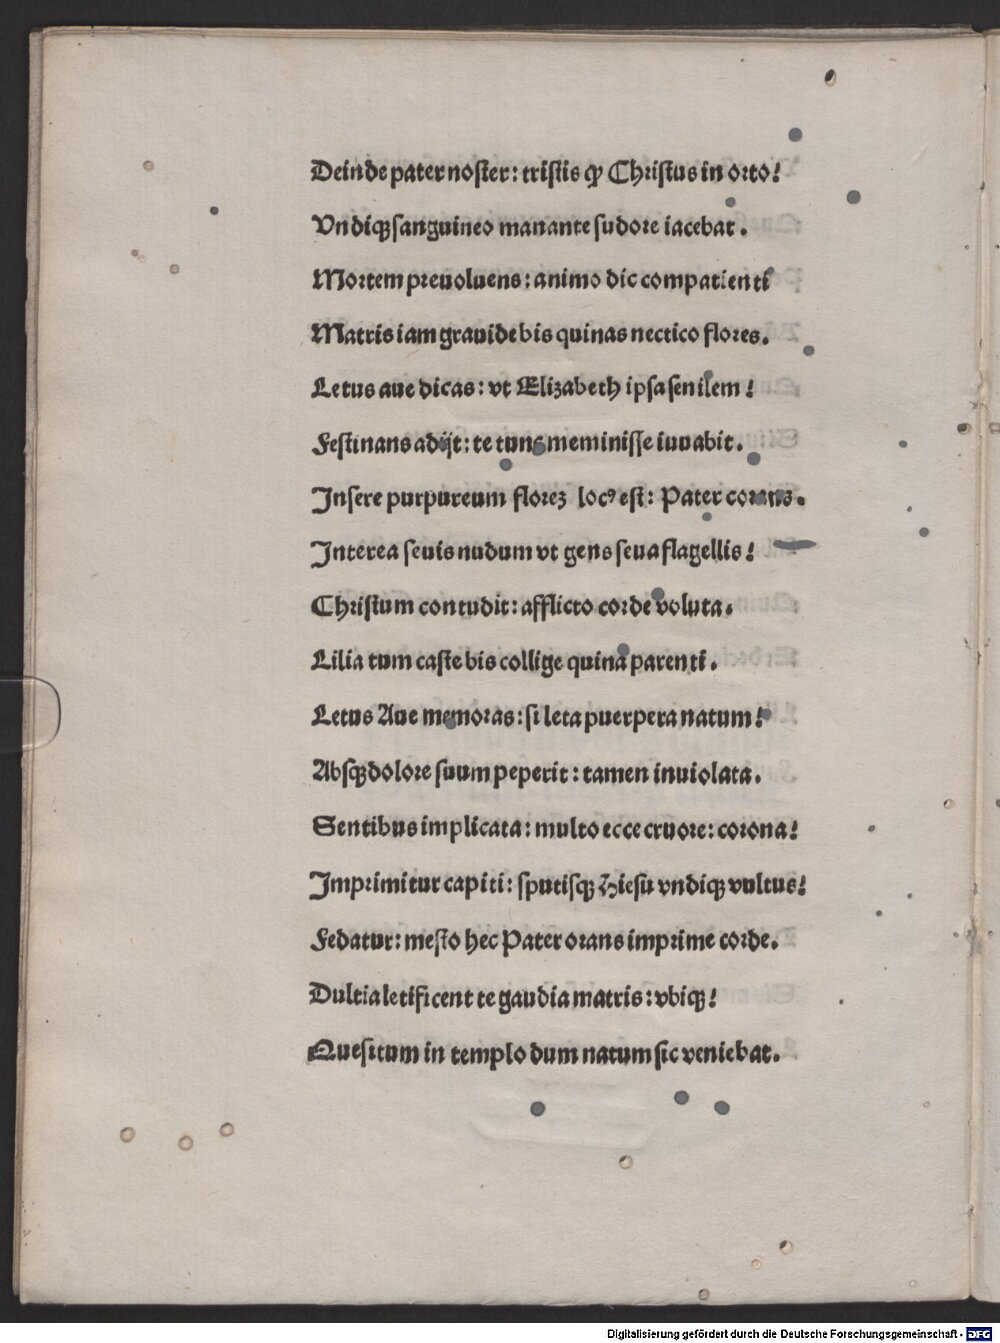 Deinde pater noster: tristis ꝙ Christus in orto!
Vndiqꝫ sanguineo manante sudore iacebat.
Mortem preuoluens: animo dic compatienti
Matris iam grauide bis quinas nectico flores.
Letus aue dicas: vt Elizabeth ipsa senilem!
Festinans adijt: te tunc meminisse iuuabit.
Insere purpureum floreꝫ locꝰ est: Pater
Interea seuis nudum vt gens seua flagellis!
Christum contudit: afflicto corde voluta.
Lilia tum caste bis collige quina parenti.
Letus Aue memoras: si leta puerpera natum!
Absqꝫ dolore suum peperit: tamen inuiolata.
Sentibus implicata: multo ecce cruore: corona!
Imprimitur capiti: sputisqꝫ Hiesu vndiqꝫ vultus!
Fedatur: mesto hec Pater orans imprime corde.
Dultia letificent te gaudia matris: vbiqꝫ!
Quesitum in templo dum natum sic veniebat.
Digitalisierung gefördert durch die Deutsche Forschungsgemeinschaft - DFG